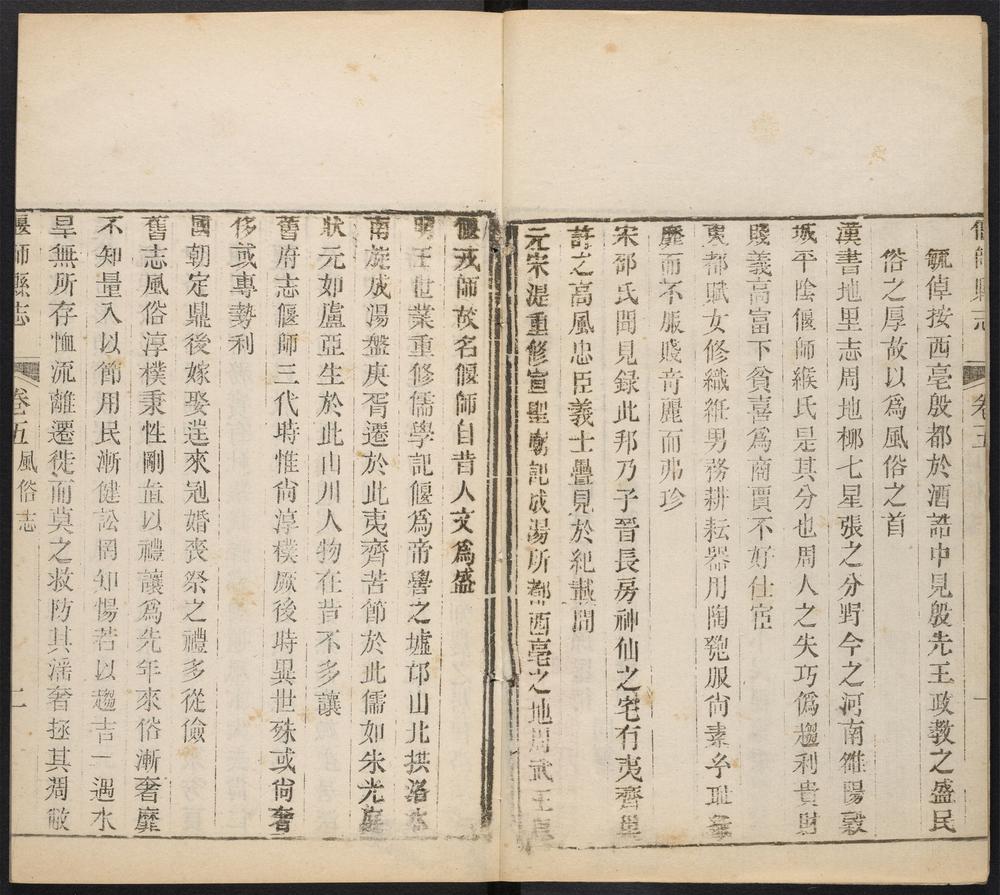 偃師縣志
卷五
毓倬按西亳殷都於酒誥中見殷先王政教之盛民
俗之厚故以爲風俗之首
漢書地里志周地柳七星張之分野今之河南雒陽穀
城平陰偃師緱氏是其分也周人之失巧僞趨利貴財
賤義高富下貧喜爲商賈不好仕宦
東都賦女修織紝男務耕耘器用陶匏服尙素玄耻纎
靡而不服賤竒麗而弗珍
宋邵氏聞見録此邦乃子晉長房神仙之宅有夷齊巢
許之高風忠臣義士疊見於紀載間
元宋湜重修宣聖廟記成湯所都西亳之地周武王
偃戎師故名偃師自昔人文爲盛
明王世業重修儒學記偃爲帝嚳之墟邙山北拱洛水
南旋成湯盤庚胥遷於此夷齊苦節於此儒如朱光庭
狀元如盧亞生於此山川人物在昔不多讓
舊府志偃師三代時惟尙淳樸厥後時異世殊或尙奢
侈或專勢利
國朝定鼎後嫁娶送來冠婚喪祭之禮多從儉
舊志風俗淳樸秉性剛直以禮讓爲先年來俗漸奢靡
不知量入以節用民漸健訟罔知惕若以趨吉一遇水
旱無所存恤流離遷徙而莫之救防其滛奢拯其凋敝
偃師縣志
卷五風俗志
二